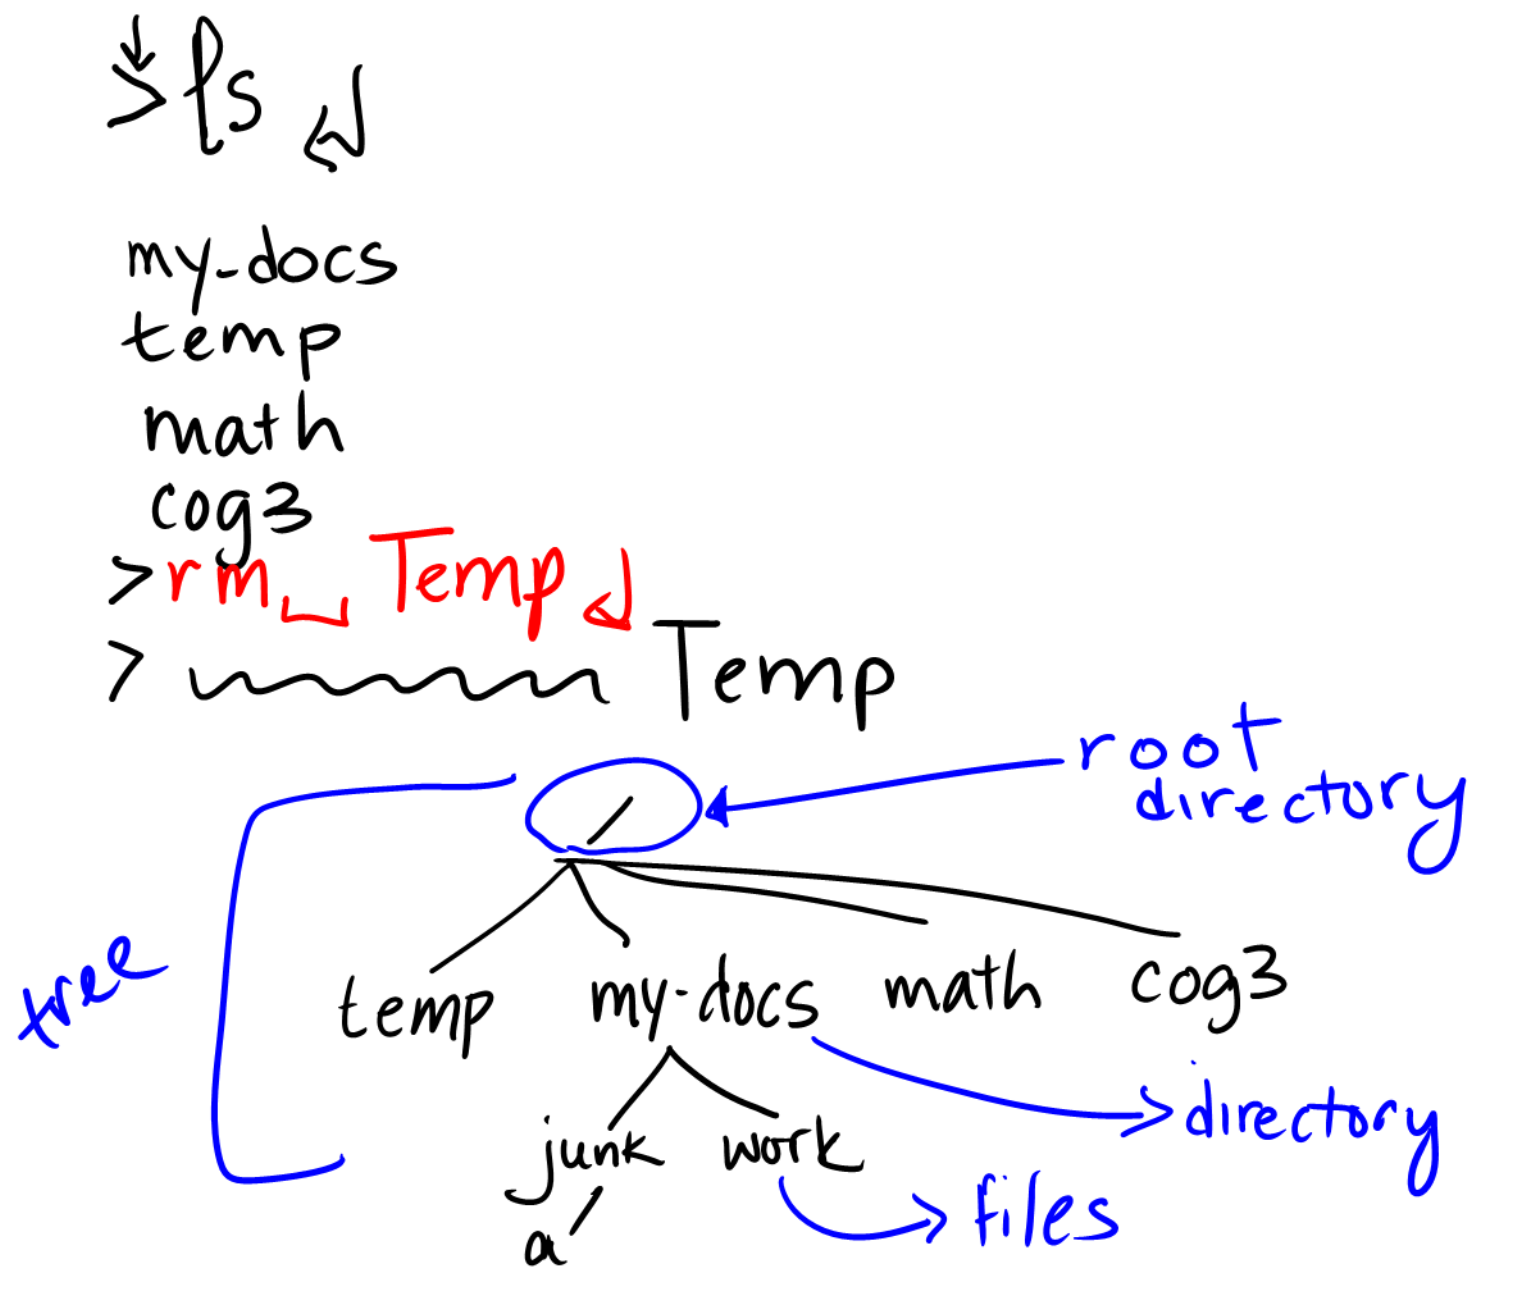 > ls ↵
my-docs
temp
math
cog3
> rm␣Temp ↵
> Temp
root
directory
/
tree
temp my-docs math cog3
directory
junk work
files
a